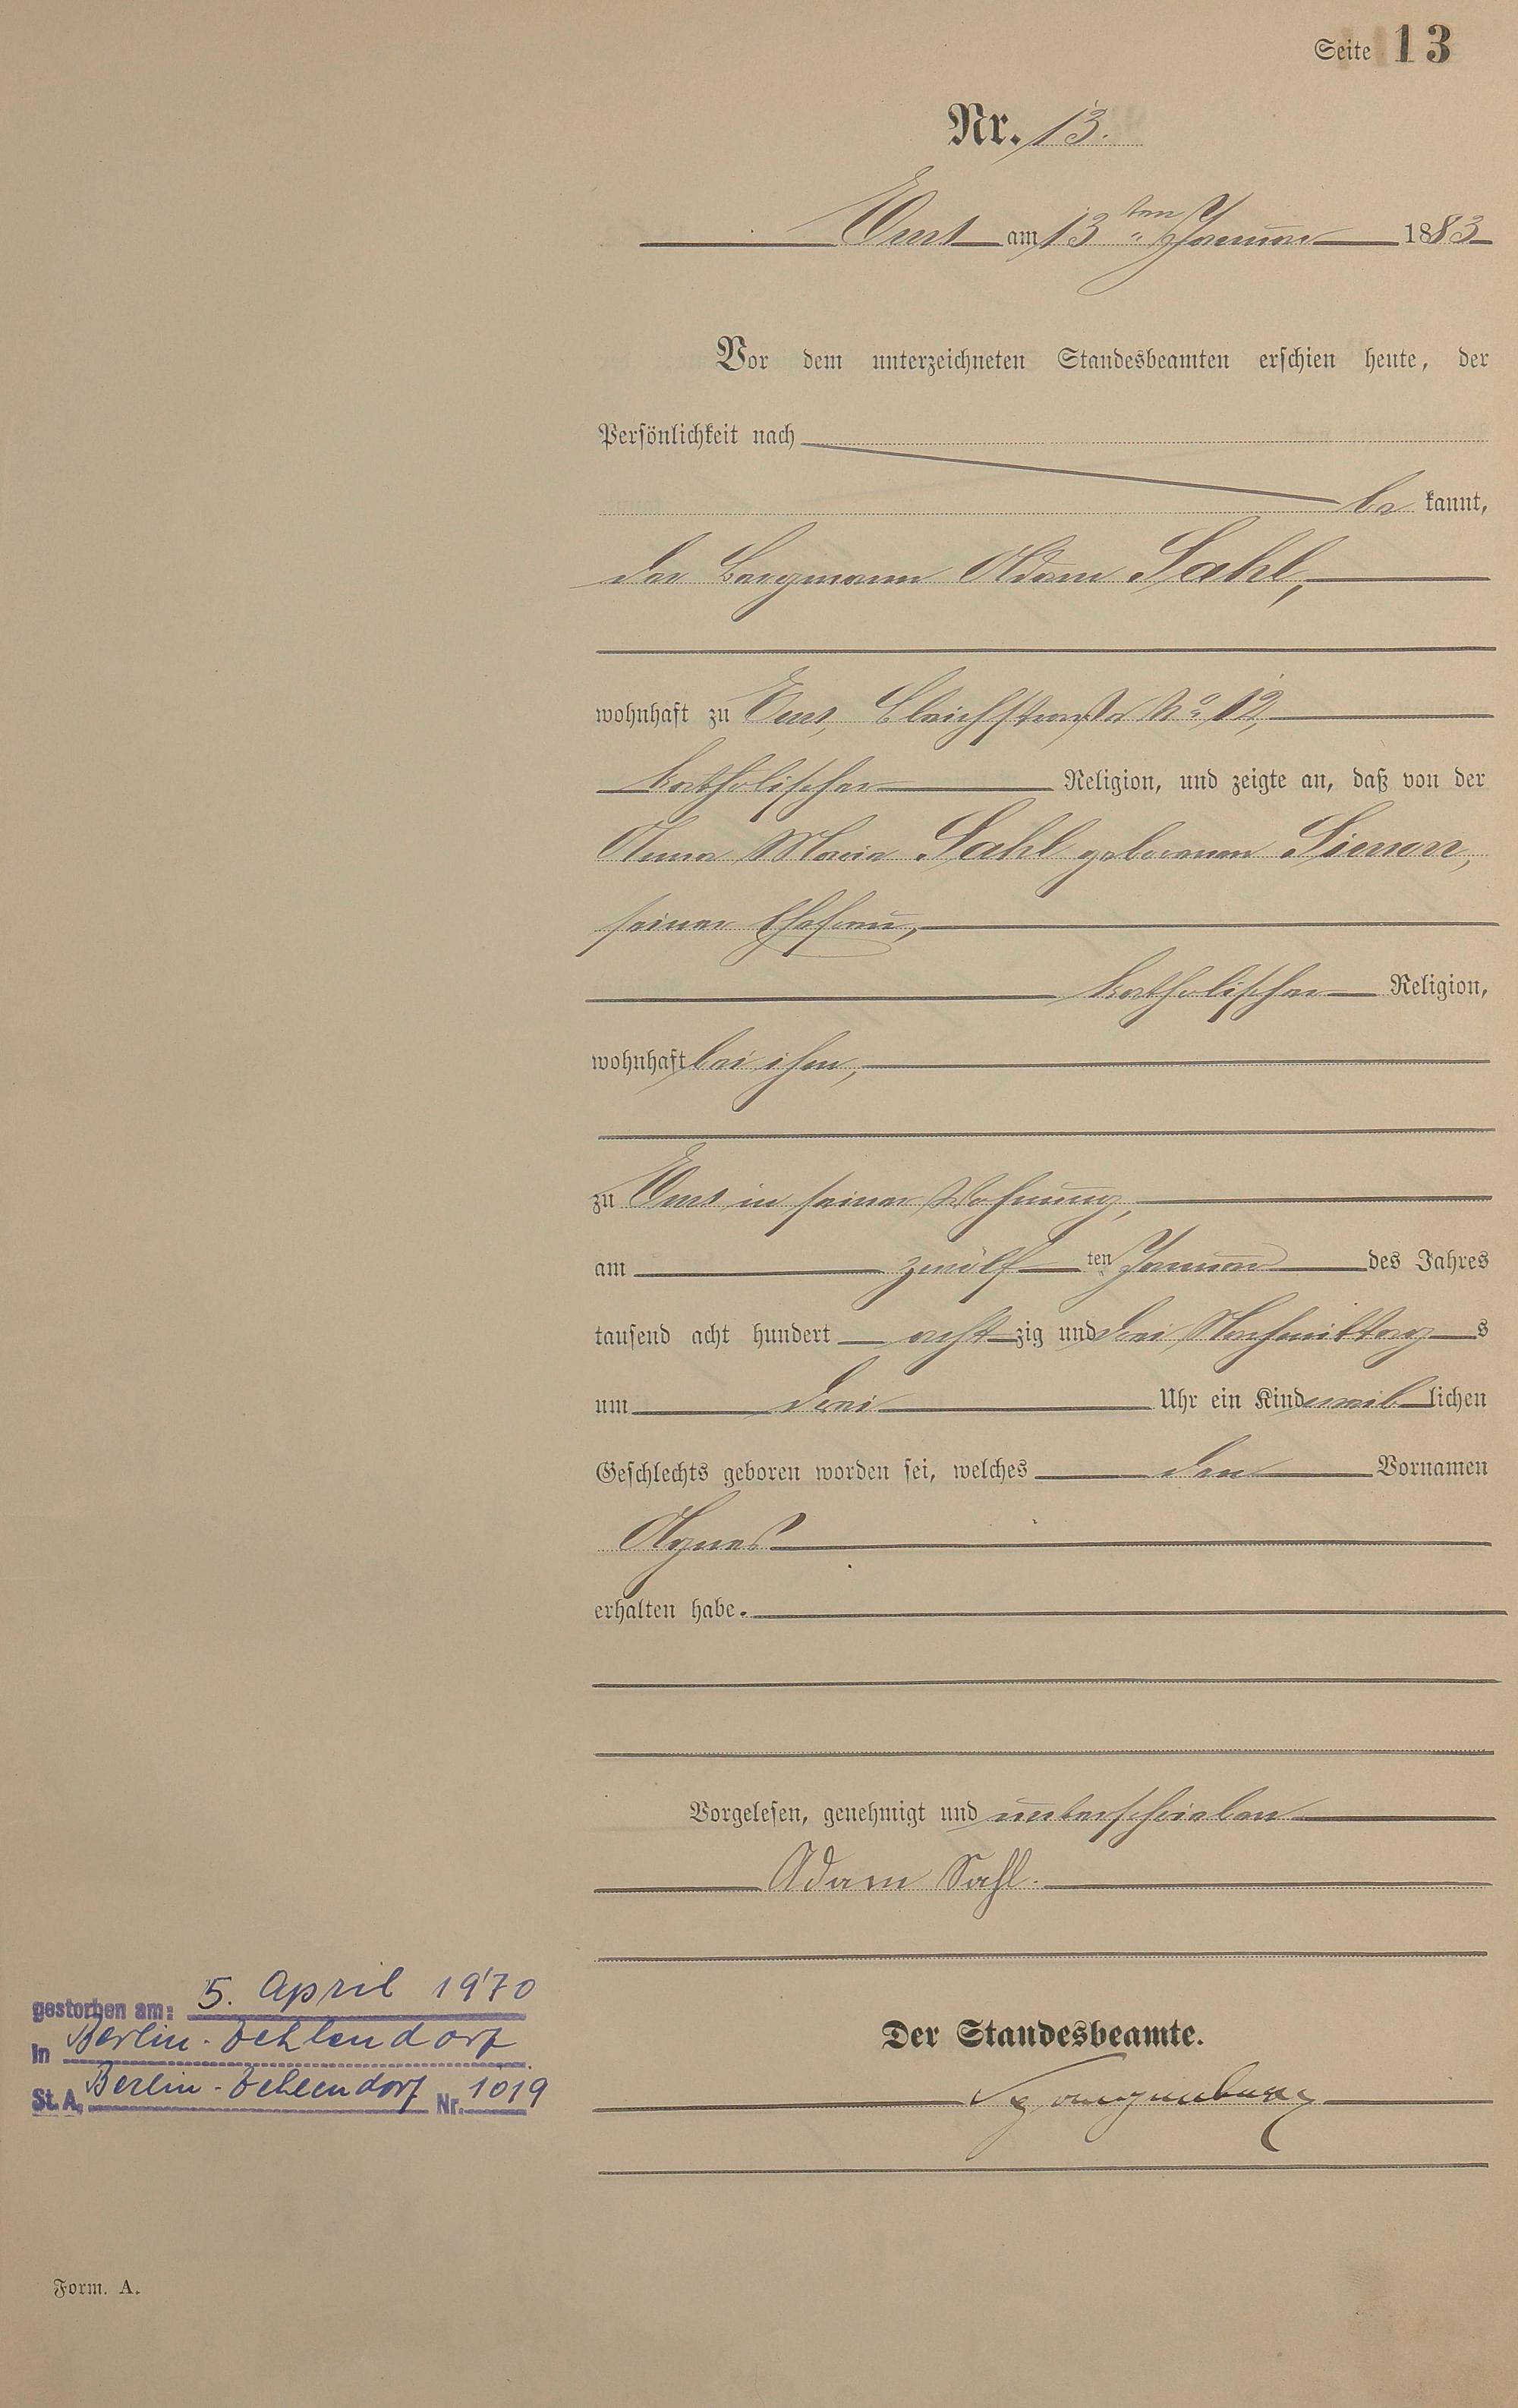 Seite 13
Nr. 13.
Ems am 13ten Januar 1883
Vor dem unterzeichneten Standesbeamten erschien heute, der
Persönlichkeit nach
be kannt,
der Bergmann Adam Sahl,
wohnhaft zu Ems, Bleichstraße No 12,
katholischer Religion, und zeigte an, daß von der
Anna Maria Sahl geborenen Simon,
seiner Ehefrau,
katholischer Religion,
wohnhaft bei ihm,
zu Ems in seiner Wohnung,
am zwölf ten Januar des Jahres
tausend acht hundert acht zig und drei Nachmittag s
um drei Uhr ein Kind weib lichen
Geschlechts geboren worden sei, welches den Vornamen
Agnes
erhalten habe.
Vorgelesen, genehmigt und unterschrieben
Adam Sahl.
gestorben am: 5. April 1970
in Berlin-Zehlendorf
St. A. Berlin-Zehlendorf Nr. 1019
Der Standesbeamte.
Form. A.